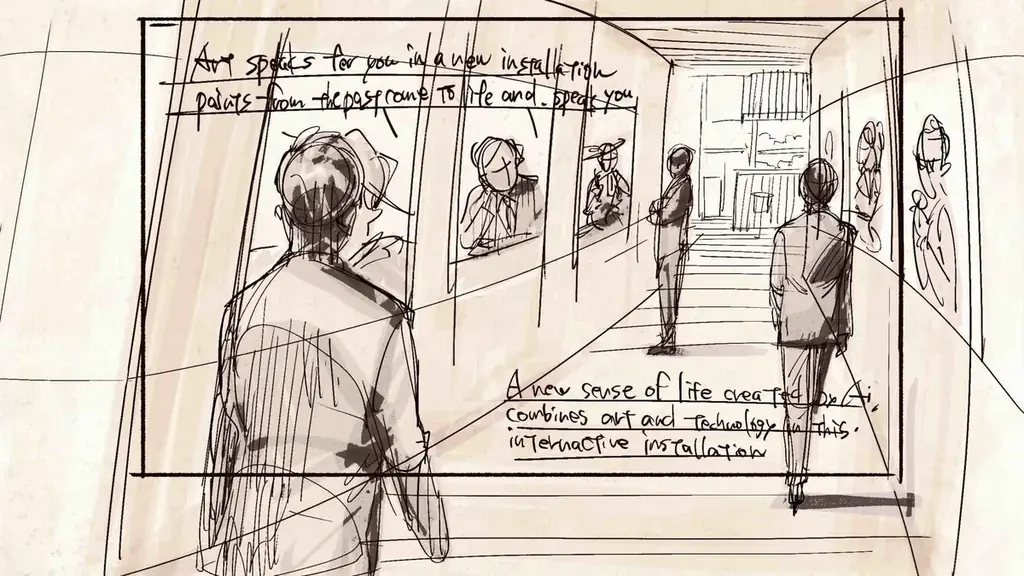 Art speaks for you in a new installation
paints from the past come to life and speak you
A new sense of life created by Ai.
combines art and technology in this.
internactive installation